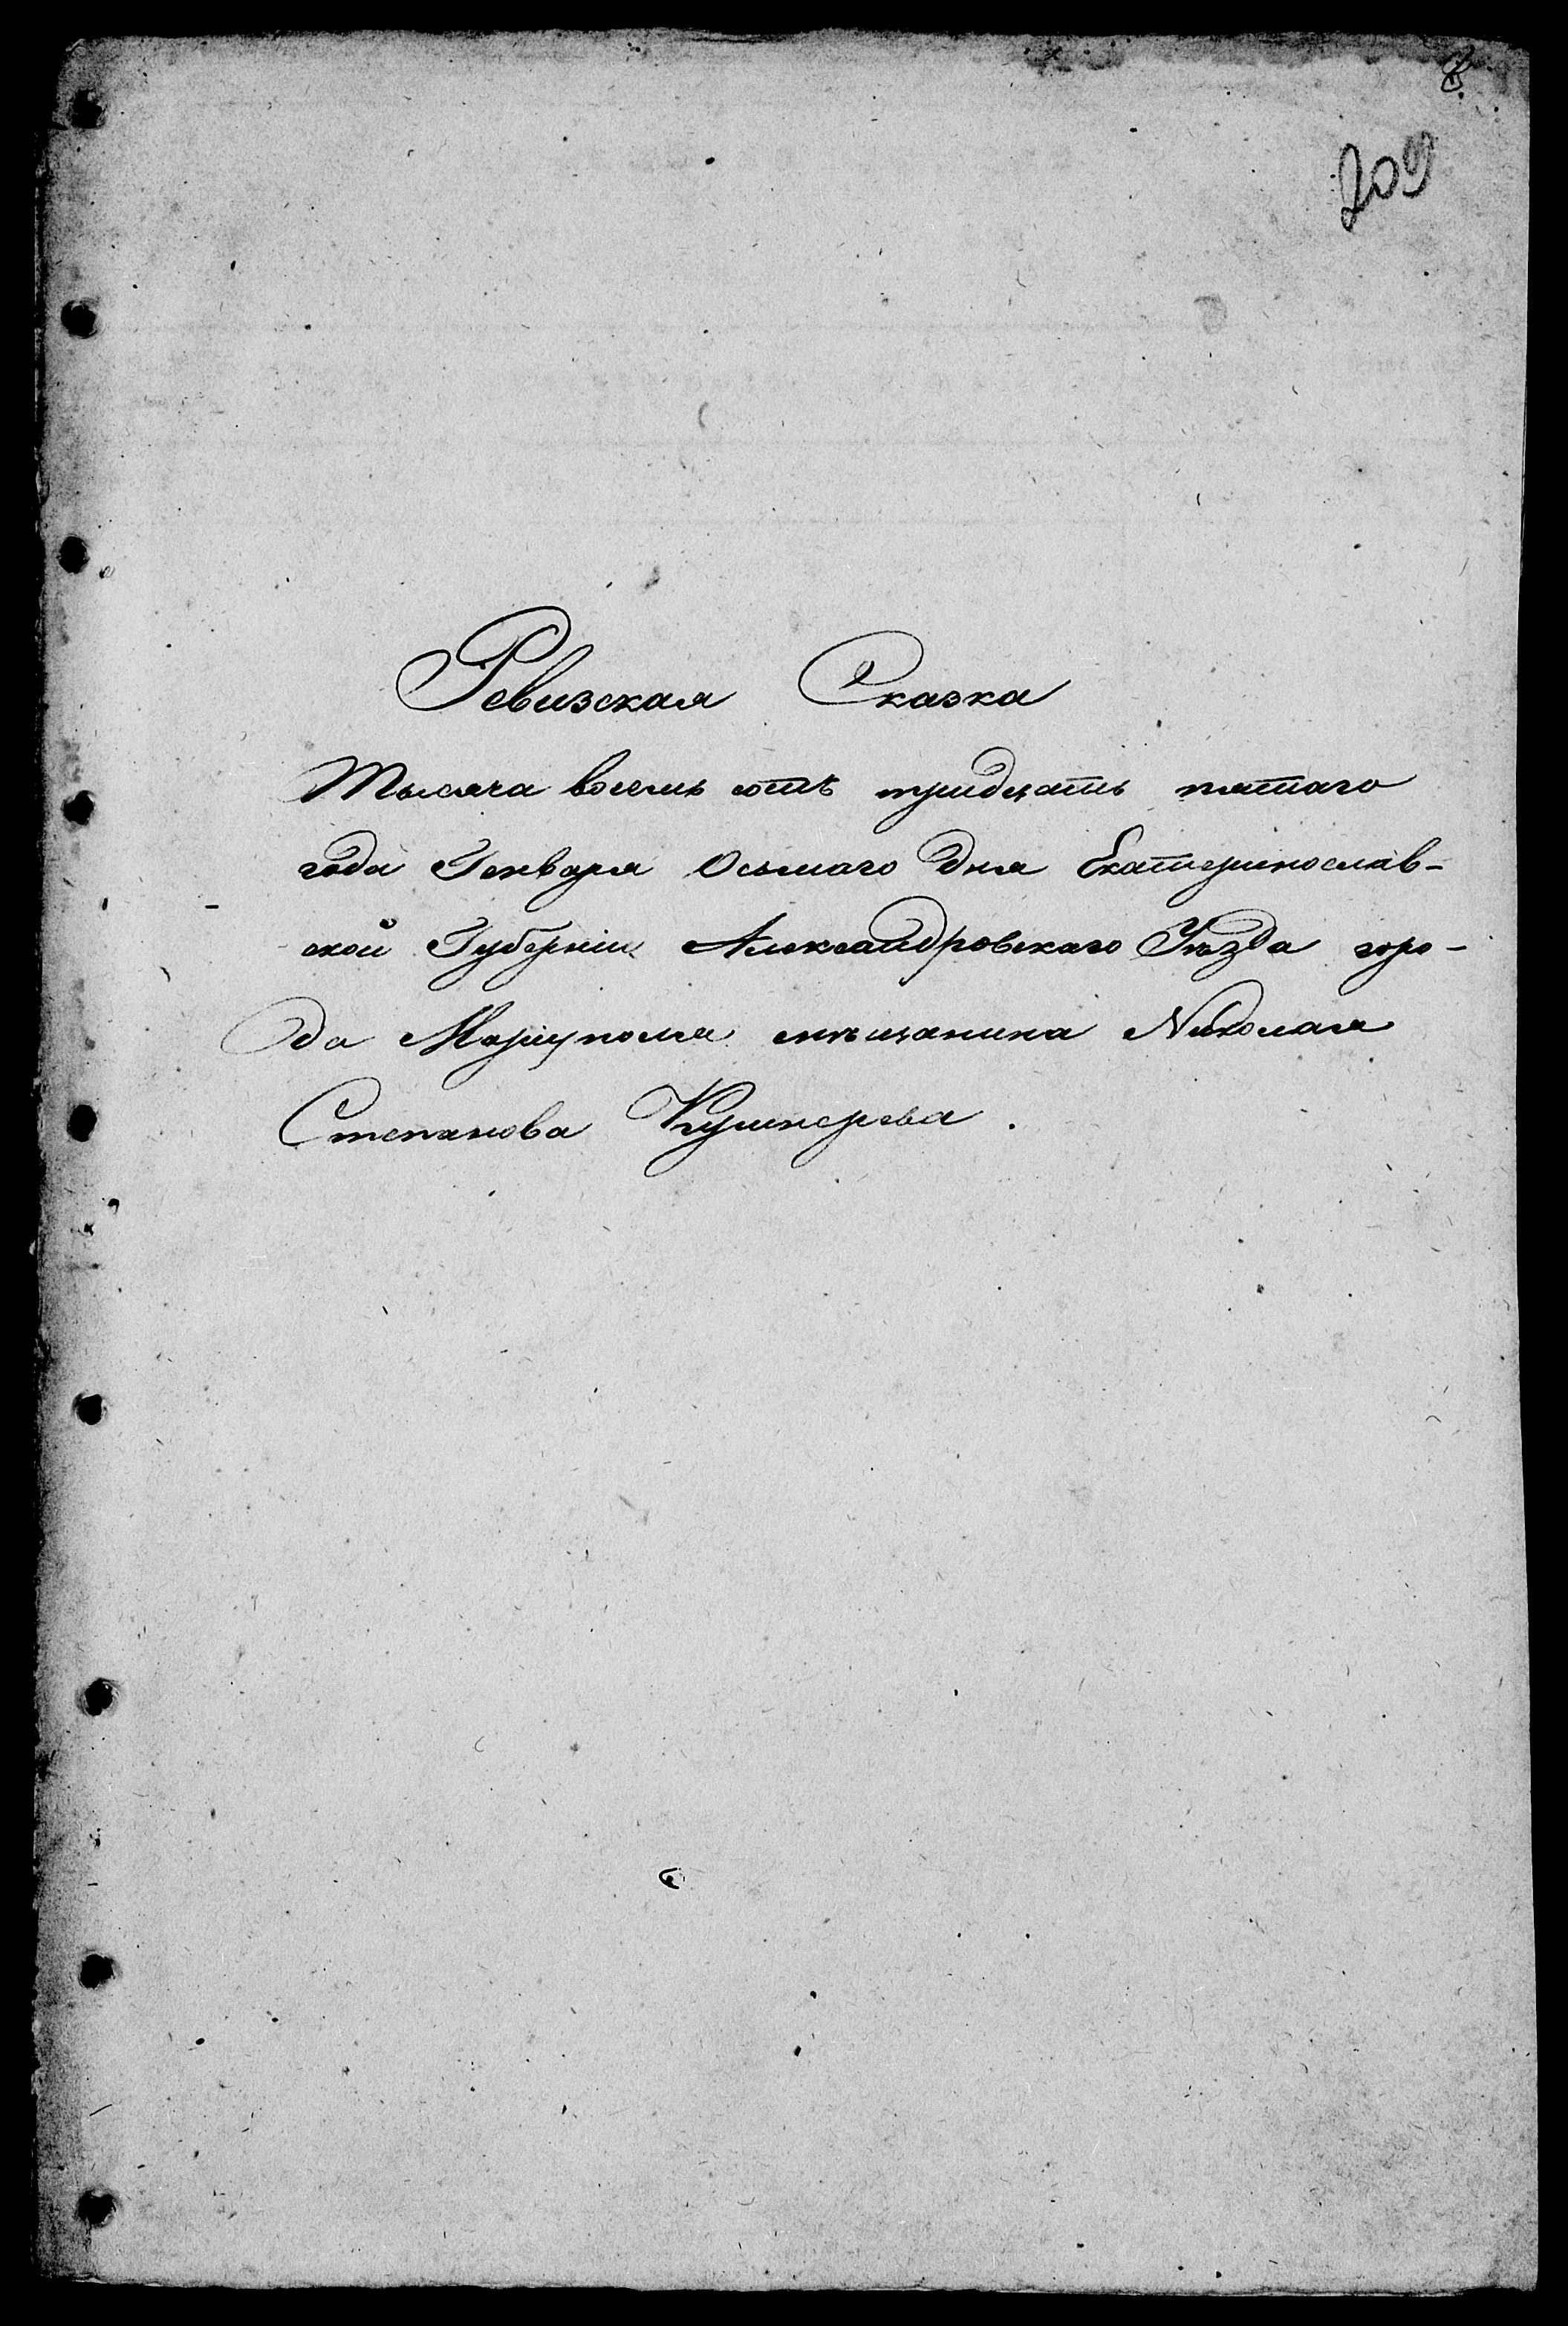 8.
209
Ревизская Сказка
Тысяча восемь сотъ тридцать пятаго
года Генваря Осьмаго Дня Екатеринослав-
ской Губерніи Александровскаго Уѣзда горо-
да Маріуполя мѣщанина Николая
Степанова